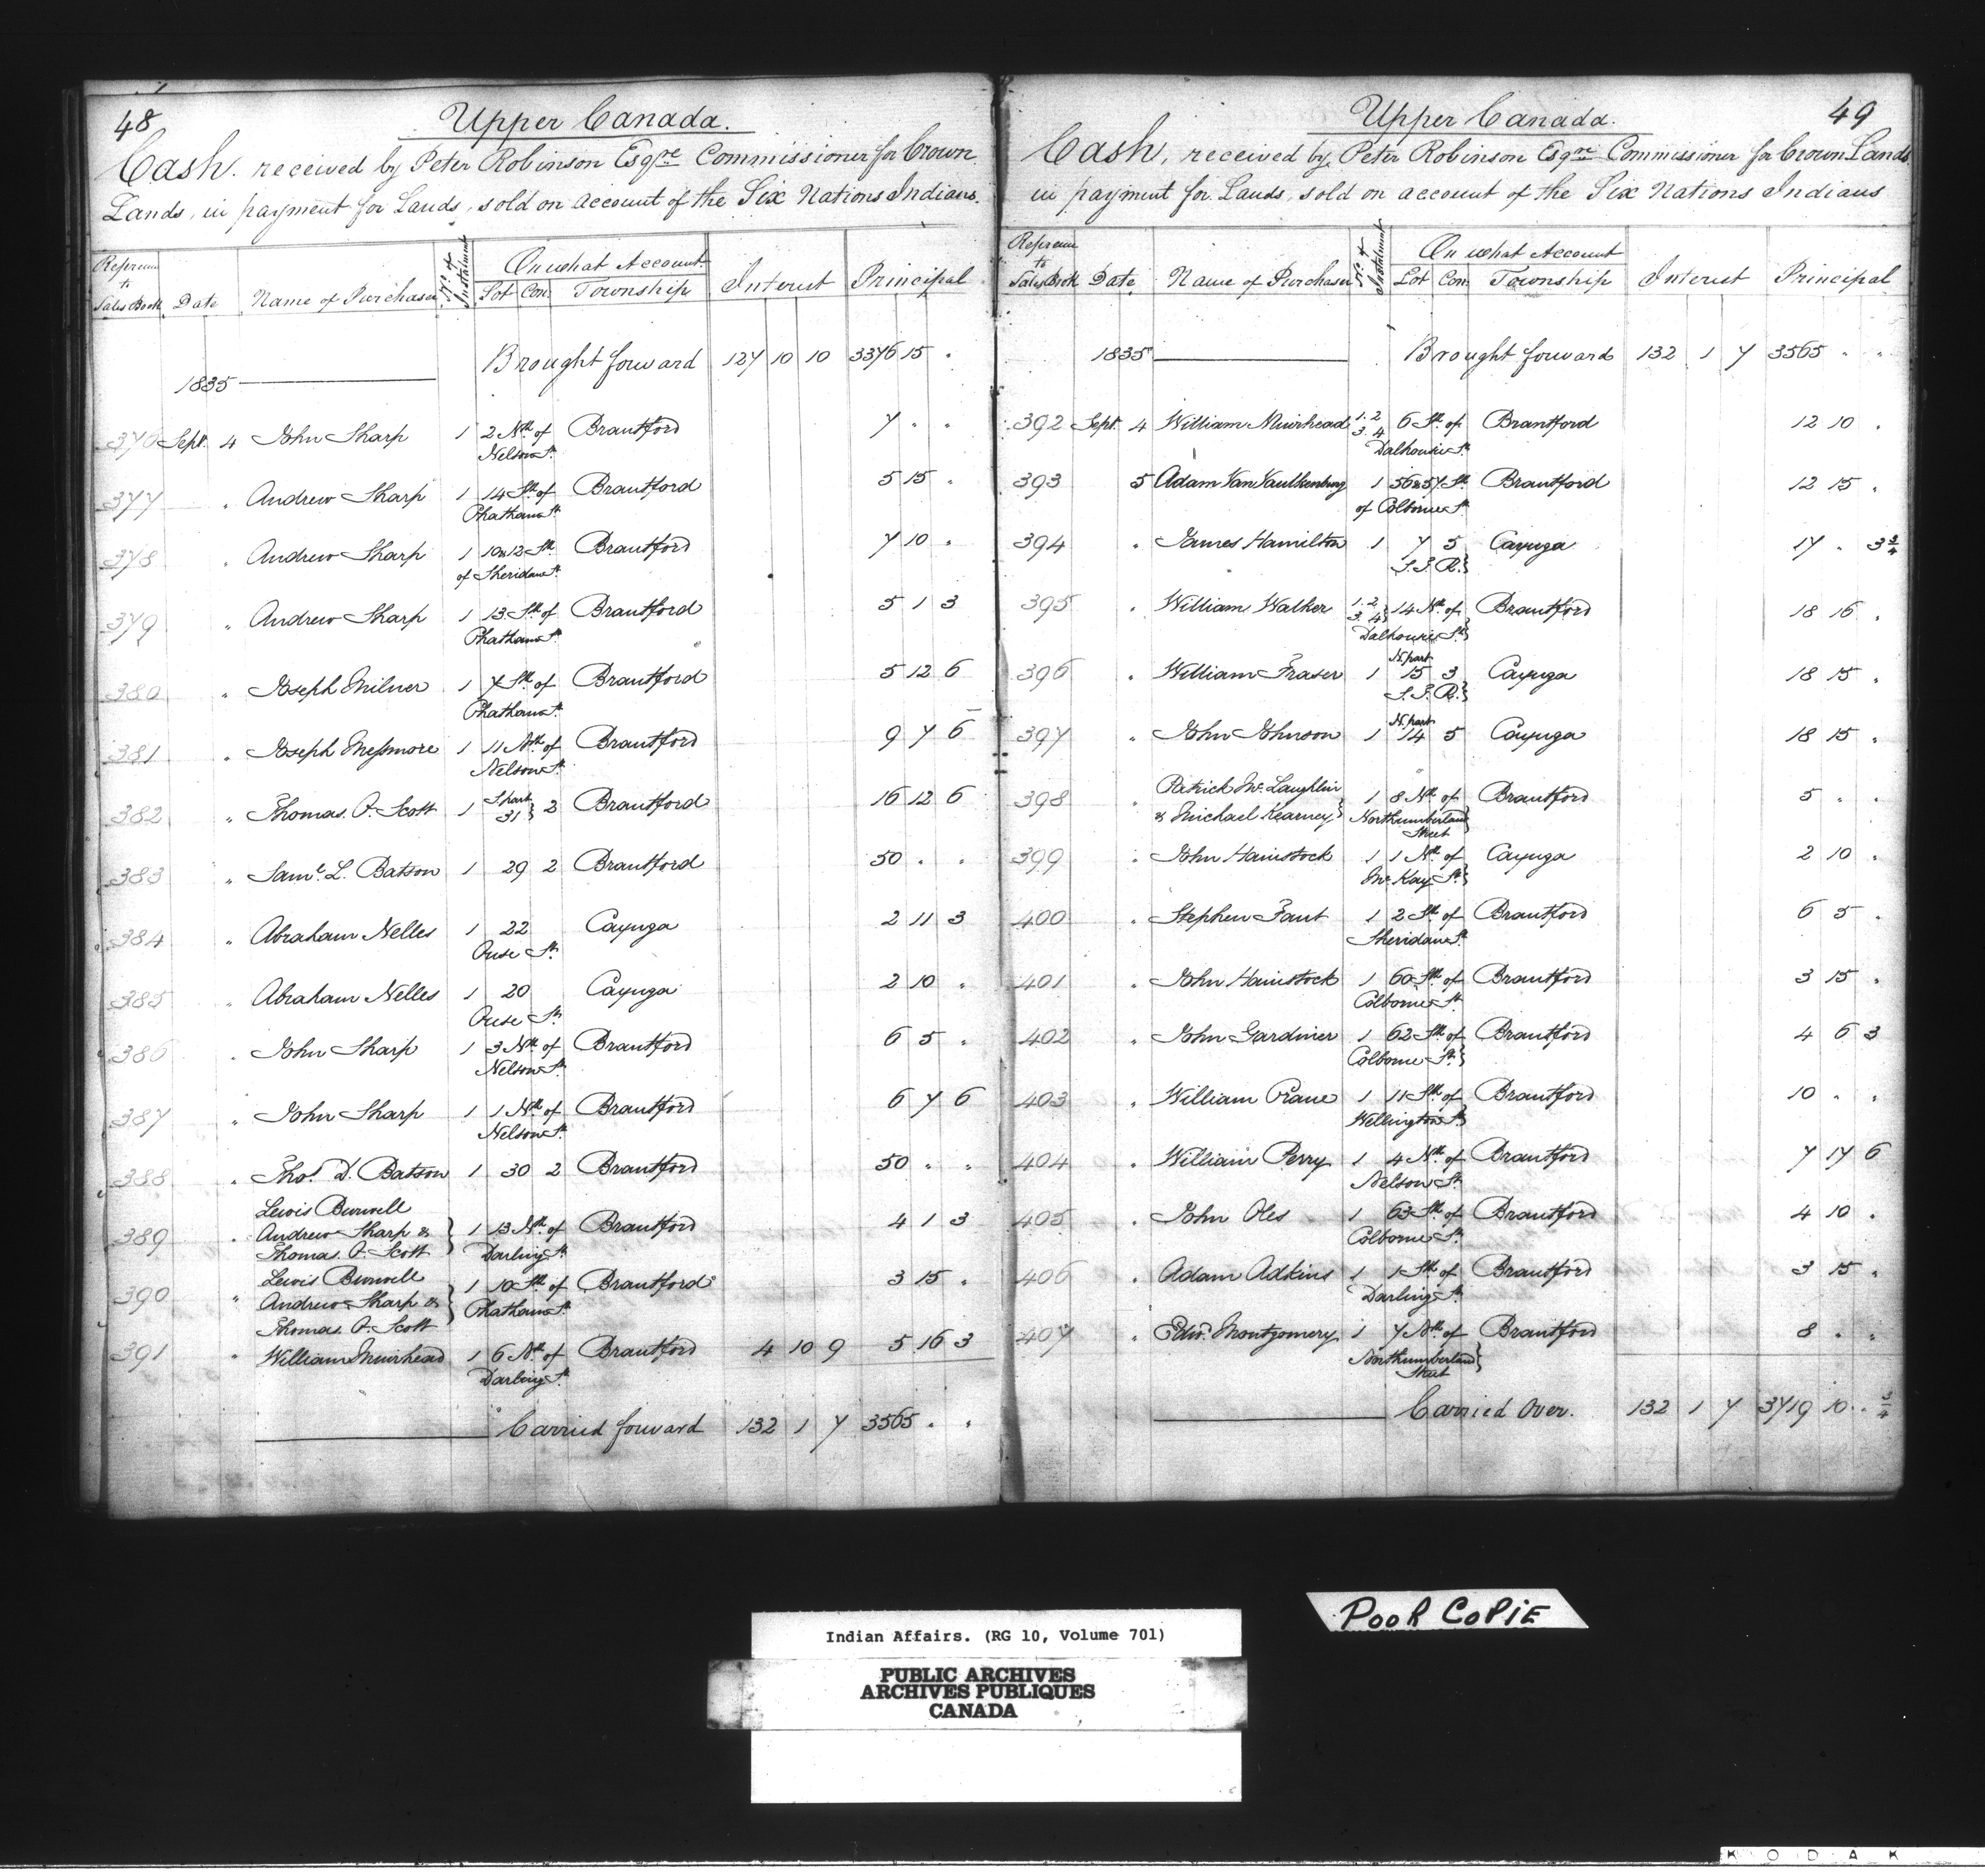 48
Upper Canada.
Cash. received by Peter Robinson Esqre Commissioner for Crown
Lands, in payment for Lands, sold on account of the Six Nations Indians.
Reference to Sales Book Date Name of Purchaser No. of Instalment On what Account Lot Con Township Interest Principal
Brought forward 127 10 10 3376 15 "
1835
376 Sept. 4 John Sharp 1 2 Nth of Brantford 7 " "
Nelson St.
377 " Andrew Sharp 1 14 Sth of Brantford 5 15 "
Chatham St.
378 " Andrew Sharp 1 10 & 12 Sth Brantford 7 10 "
of Sheridan St.
379 " Andrew Sharp 1 13 Sth of Brantford 5 1 3
Chatham St.
380 " Joseph Milner 1 7 Sth of Brantford 5 12 6
Chatham St.
381 " Joseph Messmore 1 11 Nth of Brantford 9 7 6
Nelson St.
382 " Thomas. P. Scott 1 S. part 31 } 2 Brantford 16 12 6
383 " Saml. L. Batson 1 29 2 Brantford 50 " "
384 " Abraham Nelles 1 22 Cayuga 2 11 3
Ouse St.
385 " Abraham Nelles 1 20 Cayuga 2 10 "
Ouse St.
386 " John Sharp 1 3 Nth of Brantford 6 5 "
Nelson St.
387 " John Sharp 1 1 Nth of Brantford 6 7 6
Nelson St.
388 " Thos. D. Batson 1 30 2 Brantford 50 " "
Lewis Burwell
389 " Andrew Sharp & } 1 13 Nth of Brantford 4 1 3
Thomas. P. Scott Darling St.
Lewis Burwell
390 " Andrew Sharp & } 1 10 Sth of Brantford 3 15 "
Thomas. P. Scott Chatham St.
391 " William Muirhead 1 6 Nth of Brantford 4 10 9 5 16 3
Darling St.
Carried forward 132 1 7 3565 " "
49
Upper Canada.
Cash, received by Peter Robinson Esqre Commissioner for Crown Lands
in payment for Lands, sold on account of the Six Nations Indians
Reference to Sales Book Date Name of Purchaser No. of Instalment On what Account Lot Con Township Interest Principal
1835 Brought forward 132 1 7 3565 " "
392 Sept. 4 William Muirhead 1.2 3.4 6 Sth of Brantford 12 10 "
Dalhousie St.
393 5 Adam Van Vaulkenburg 1 56 & 57 St. Brantford 12 15 "
of Colborne St.
394 " James Hamilton 1 7 5 Cayuga 17 " 3 3/4
S.S.R.}
395 " William Walker 1.2 3.4 } 14 Nth of Brantford 18 16 "
Dalhousie St.}
396 " William Fraser 1 N. part 15 3 Cayuga 18 15 "
S.S.R.}
397 " John Johnson 1 N. part 14 5 Cayuga 18 15 "
398 " Patrick McLaughlin
& Michael Kearney } 1 8 Nth of Brantford 5 " "
Northumberland Street }
399 " John Hainstock 1 1 Nth of Cayuga 2 10 "
McKay St.}
400 " Stephen Fant 1 2 Sth of Brantford 6 5 "
Sheridan St.
401 " John Hainstock 1 60 Sth of Brantford 3 15 "
Colborne St.
402 " John Gardiner 1 62 Sth of Brantford 4 6 3
Colborne St.}
403 " William Crane 1 11 Sth of Brantford 10 " "
Wellington St.}
404 " William Perry 1 4 Nth of Brantford 7 17 6
Nelson St.
405 " John Oles 1 63 Sth of Brantford 4 10 "
Colborne St.
406 " Adam Adkins 1 1 Sth of Brantford 3 15 "
Darling St.
407 " Edwd. Montgomery 1 7 Nth of Brantford 8 " "
Northumberland Street }
Carried Over. 132 1 7 3719 10 " 3/4
Pooh CoPiE
Indian Affairs. (RG 10, Volume 701)
PUBLIC ARCHIVES
ARCHIVES PUBLIQUES
CANADA
KODAK